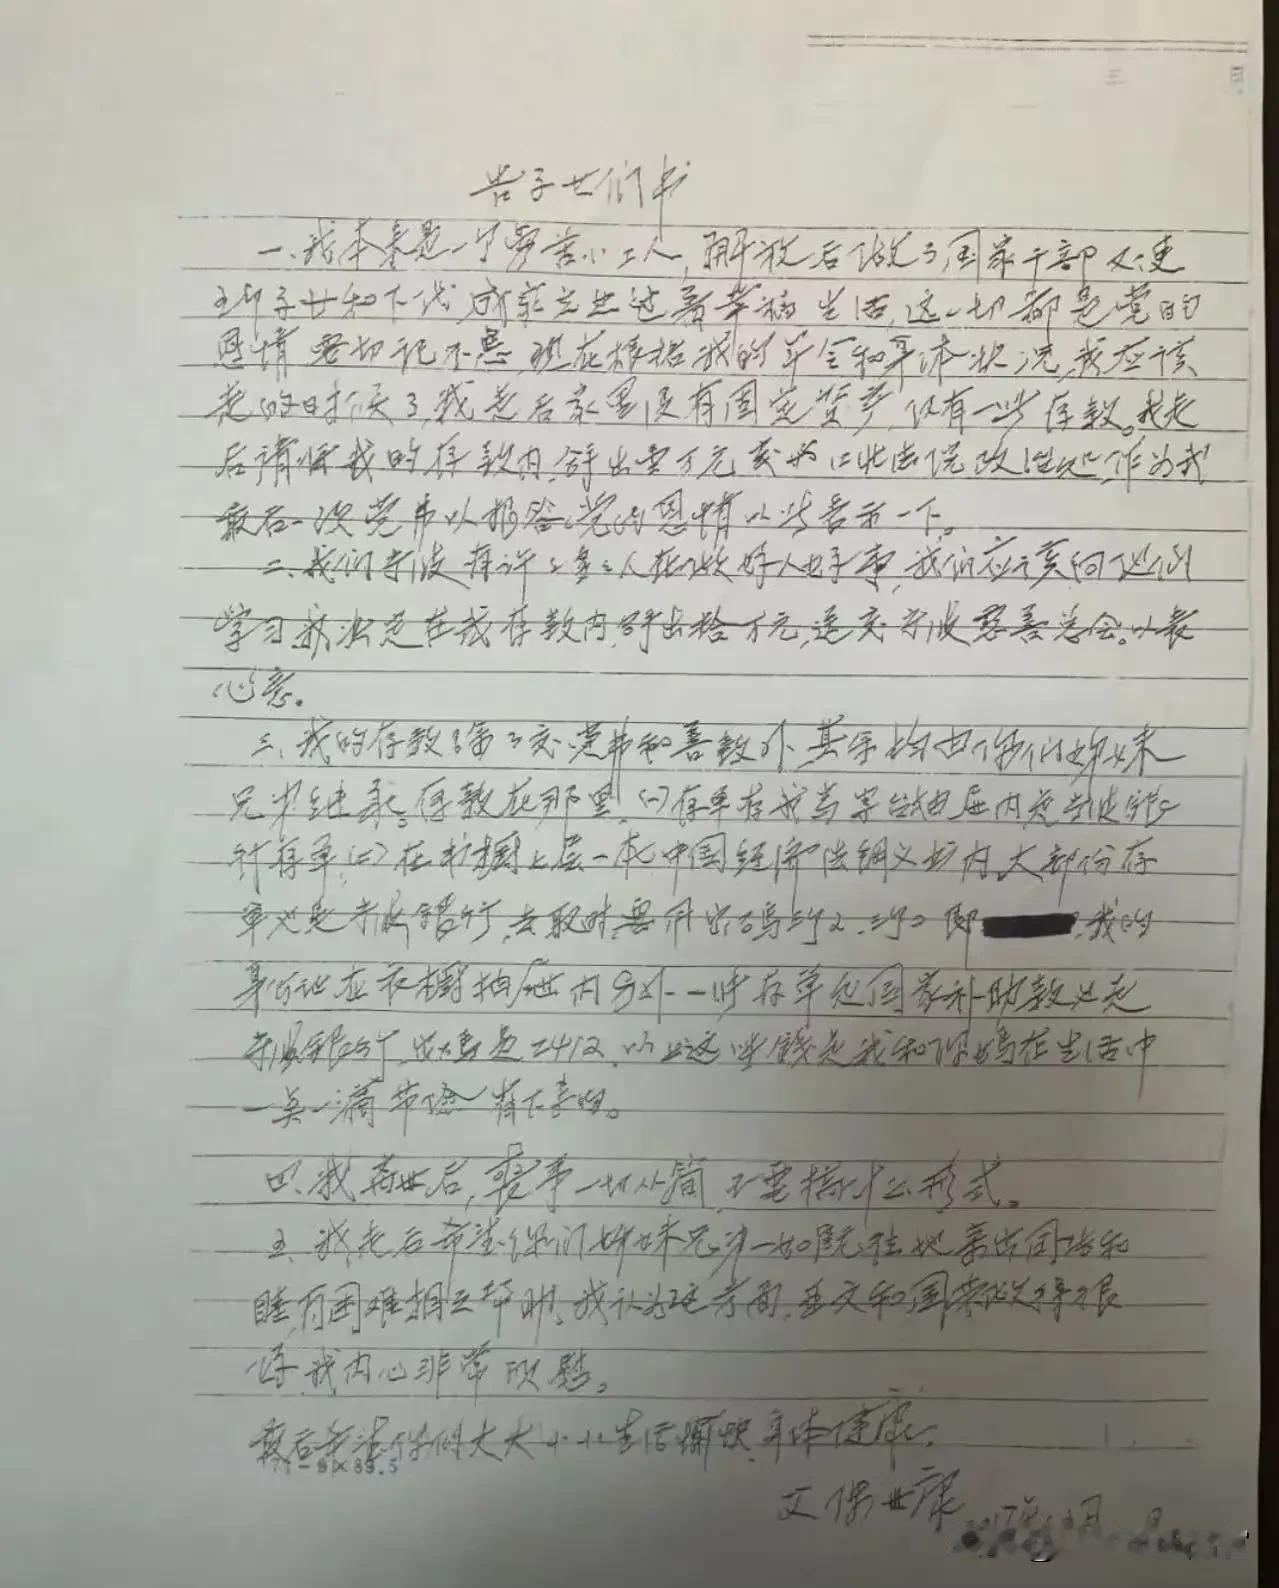 告子女们书
一、我本来是一个劳苦小工人，解放后做了国家干部又使
子女和下代成家立业过着幸福生活，这一切都是党的
恩情要切记不忘，现在根据我的年令和身体状况，我应该
走的时候了，我走后家里没有固定资产，仅有一些存款。我走
后请将我的存款内，拿出壹万元交给江北法院，作为我
最后一次党费以报答党的恩情以此表示一下。
二、我们宁波有许多多人在做好人好事，我们应该向他们
学习，我决定在我存款内拿出拾万元，送交宁波慈善总会。以表
心意。
三、我的存款除了交党费和善款外，其余均由你们姊妹
兄弟继承。存款在那里，(一)存单在我写字台抽屉内是宁波银
行存单，(二)在书橱上层一本中国经济法纲义书内，大部份存
单也是宁波银行，去取时要用密码，我的
身份证在衣橱抽屉内，另外一些存单是国家补助款也是
宁波银行，密码是2412，以上这些钱是我和你妈在生活中
一点一滴节俭省下来的。
四、我离世后，丧事一切从简，不要搞什么形式。
五、我走后希望你们姊妹兄弟一如既往地亲密团结和
睦，有困难相互帮助，我认为建芳、亚文和国荣做得很
好，我内心非常欣慰。
最后希望你们大大小小生活愉快，身体健康。
71-8×89.5
父 世康 2017年 月 日